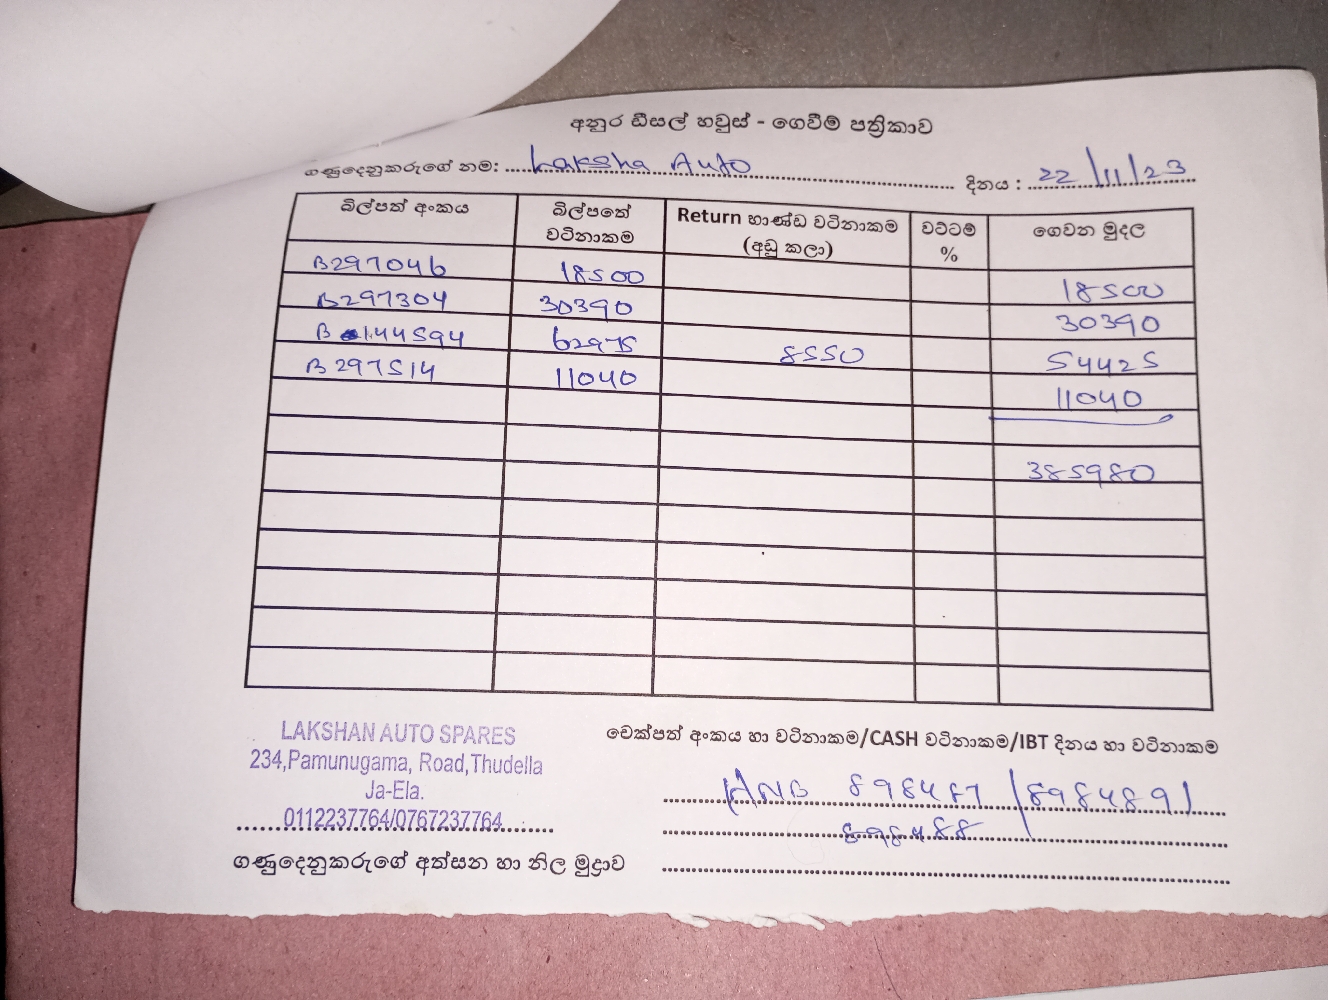 අනුර ඩීසල් හවුස් - ගෙවීම් පත්‍රිකාව
ගණුදෙනුකරුගේ නම: Laksha Auto දිනය : 22/11/23
බිල්පත් අංකය බිල්පතේ වටිනාකම Return භාණ්ඩ වටිනාකම (අඩු කලා) වට්ටම් % ගෙවන මුදල
B297046 18500 18500
B297304 30390 30390
B 144594 62975 8550 54425
B 297514 11040 11040
385980
LAKSHAN AUTO SPARES
234,Pamunugama, Road,Thudella
Ja-Ela.
0112237764/0767237764
ගණුදෙනුකරුගේ අත්සන හා නිල මුද්‍රාව
චෙක්පත් අංකය හා වටිනාකම/CASH වටිනාකම/IBT දිනය හා වටිනාකම
HNB 898487 / 898489 /
898488